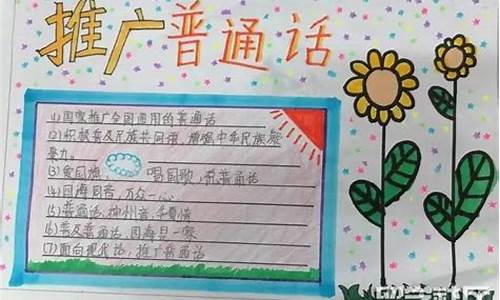 推广普通话
(1)国家推广全国通用的普通话
(2)积极普及民族共同语，增强中华民族凝
聚力。
(3)爱国旗，唱国歌，说普通话
(4)四海同音，万众一心
(5)普通话，神州音，华夏情
(6)普及普通话，四海是一家
(7)面向现代化，推广普通话